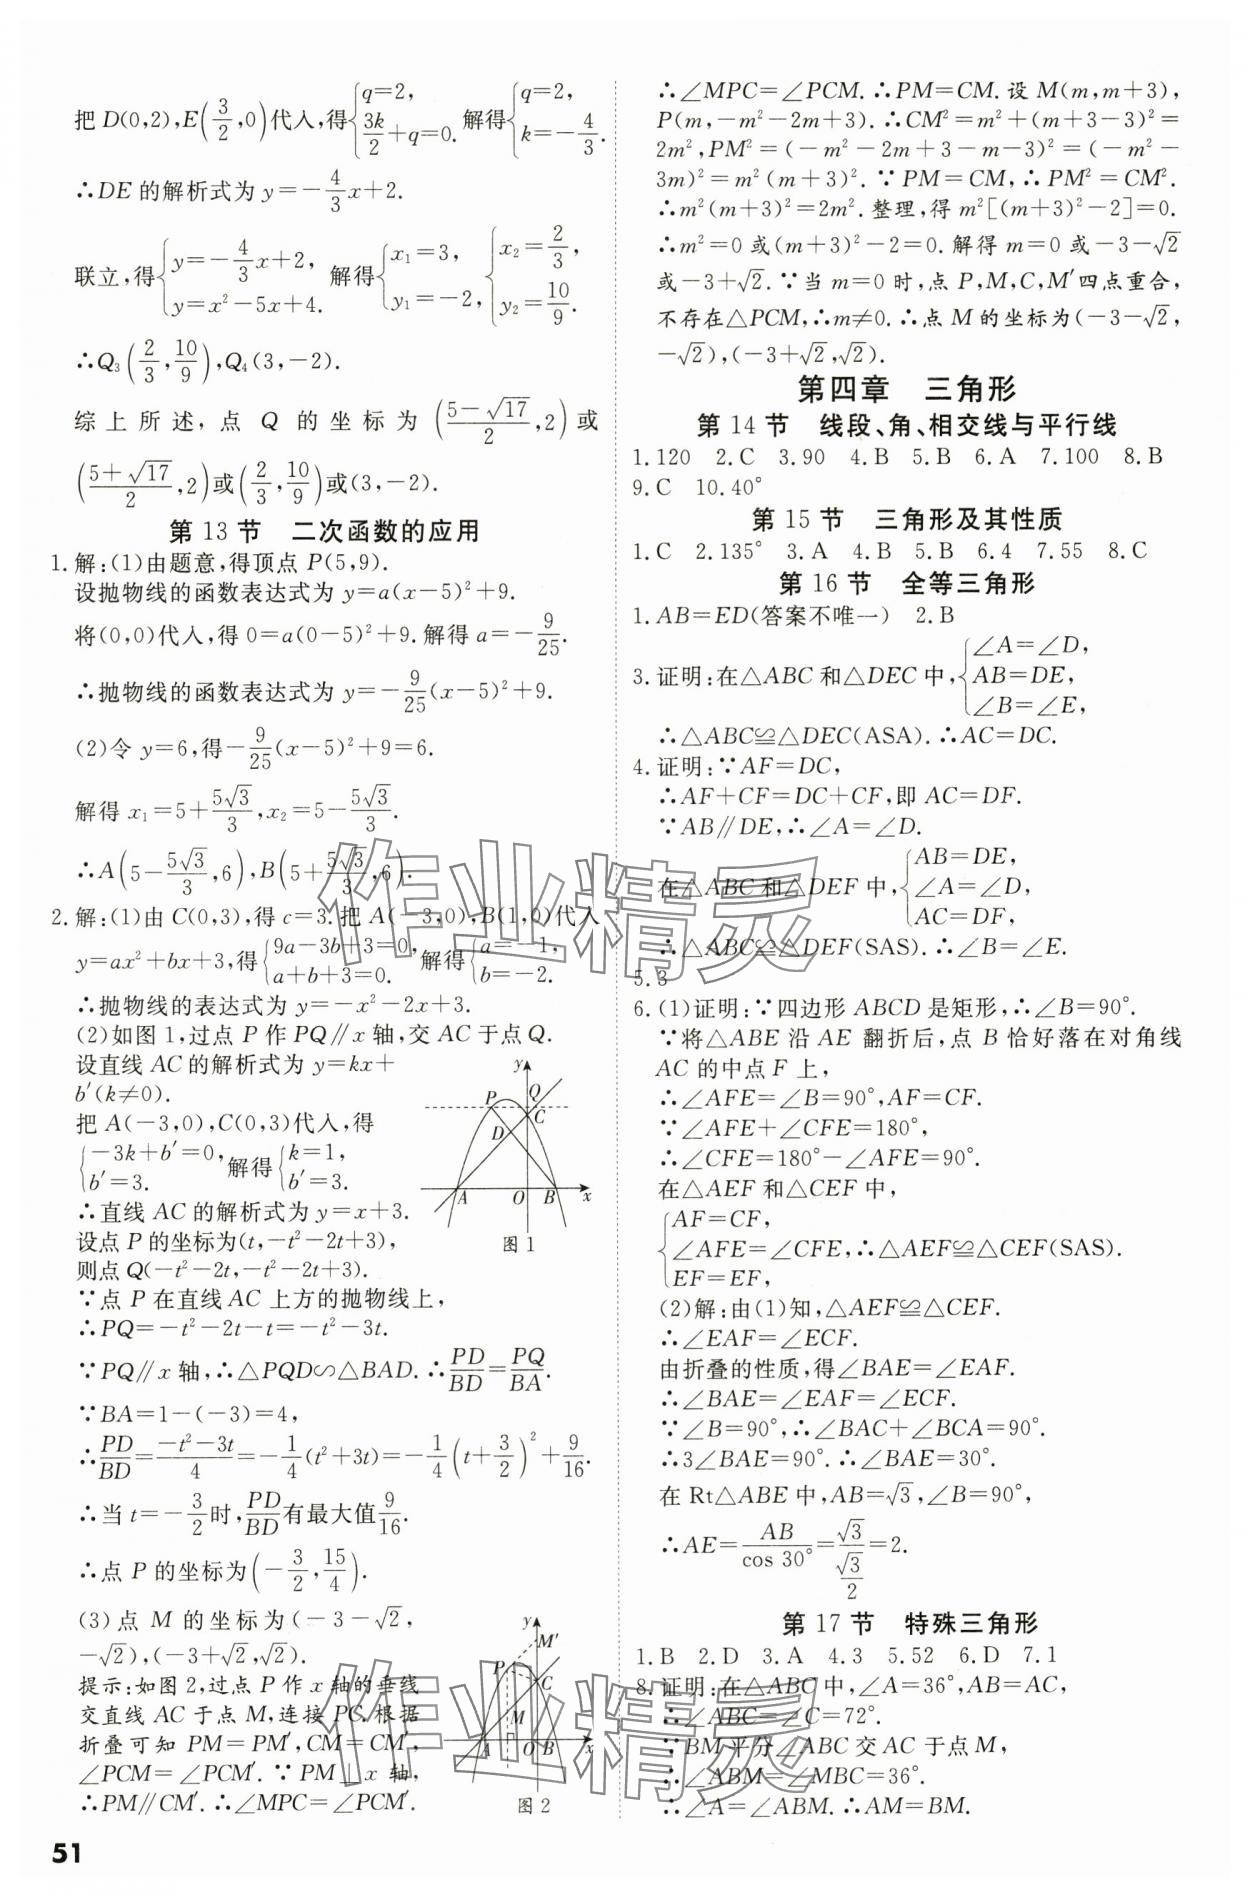 把D(0,2),E(3/2,0)代入,得{q=2, 3k/2+q=0. 解得{q=2, k=-4/3.
∴DE的解析式为y=-4/3x+2.
联立,得{y=-4/3x+2, y=x²-5x+4. 解得{x₁=3, y₁=-2, {x₂=2/3, y₂=10/9.
∴Q₃(2/3,10/9),Q₄(3,-2).
综上所述,点Q的坐标为((5-√17)/2,2)或
((5+√17)/2,2)或(2/3,10/9)或(3,-2).
第13节 二次函数的应用
1.解:(1)由题意,得顶点P(5,9).
设抛物线的函数表达式为y=a(x-5)²+9.
将(0,0)代入,得0=a(0-5)²+9.解得a=-9/25.
∴抛物线的函数表达式为y=-9/25(x-5)²+9.
(2)令y=6,得-9/25(x-5)²+9=6.
解得x₁=5+5√3/3,x₂=5-5√3/3.
∴A(5-5√3/3,6),B(5+5√3/3,6).
2.解:(1)由C(0,3),得c=3.把A(-3,0),B(1,0)代入
y=ax²+bx+3,得{9a-3b+3=0, a+b+3=0. 解得{a=-1, b=-2.
∴抛物线的表达式为y=-x²-2x+3.
(2)如图1,过点P作PQ∥x轴,交AC于点Q.
设直线AC的解析式为y=kx+
b′(k≠0).
把A(-3,0),C(0,3)代入,得
{-3k+b′=0, b′=3. 解得{k=1, b′=3.
∴直线AC的解析式为y=x+3.
设点P的坐标为(t,-t²-2t+3),
则点Q(-t²-2t,-t²-2t+3).
y
Q
P
C
D
A O B x
图1
∵点P在直线AC上方的抛物线上,
∴PQ=-t²-2t-t=-t²-3t.
∵PQ∥x轴,∴△PQD∽△BAD.∴PD/BD=PQ/BA.
∵BA=1-(-3)=4,
∴PD/BD=(-t²-3t)/4=-1/4(t²+3t)=-1/4(t+3/2)²+9/16.
∴当t=-3/2时,PD/BD有最大值9/16.
∴点P的坐标为(-3/2,15/4).
(3)点M的坐标为(-3-√2,
-√2),(-3+√2,√2).
提示:如图2,过点P作x轴的垂线
交直线AC于点M,连接PC.根据
折叠可知PM=PM′,CM=CM′,
∠PCM=∠PCM′.∵PM⊥x轴,
∴PM∥CM′.∴∠MPC=∠PCM′.
y
M′
P
C
M
A O B x
图2
51
∴∠MPC=∠PCM.∴PM=CM.设M(m,m+3),
P(m,-m²-2m+3).∴CM²=m²+(m+3-3)²=
2m²,PM²=(-m²-2m+3-m-3)²=(-m²-
3m)²=m²(m+3)².∵PM=CM,∴PM²=CM².
∴m²(m+3)²=2m².整理,得m²[(m+3)²-2]=0.
∴m²=0或(m+3)²-2=0.解得m=0或-3-√2
或-3+√2.∵当m=0时,点P,M,C,M′四点重合,
不存在△PCM,∴m≠0.∴点M的坐标为(-3-√2,
-√2),(-3+√2,√2).
第四章 三角形
第14节 线段、角、相交线与平行线
1.120 2.C 3.90 4.B 5.B 6.A 7.100 8.B
9.C 10.40°
第15节 三角形及其性质
1.C 2.135° 3.A 4.B 5.B 6.4 7.55 8.C
第16节 全等三角形
1.AB=ED(答案不唯一) 2.B
3.证明:在△ABC和△DEC中,{∠A=∠D, AB=DE, ∠B=∠E,
∴△ABC≌△DEC(ASA).∴AC=DC.
4.证明:∵AF=DC,
∴AF+CF=DC+CF,即AC=DF.
∵AB∥DE,∴∠A=∠D.
在△ABC和△DEF中,{AB=DE, ∠A=∠D, AC=DF,
∴△ABC≌△DEF(SAS).∴∠B=∠E.
5.3
6.(1)证明:∵四边形ABCD是矩形,∴∠B=90°.
∵将△ABE沿AE翻折后,点B恰好落在对角线
AC的中点F上,
∴∠AFE=∠B=90°,AF=CF.
∵∠AFE+∠CFE=180°,
∴∠CFE=180°-∠AFE=90°.
在△AEF和△CEF中,
{AF=CF, ∠AFE=∠CFE, EF=EF, ∴△AEF≌△CEF(SAS).
(2)解:由(1)知,△AEF≌△CEF.
∴∠EAF=∠ECF.
由折叠的性质,得∠BAE=∠EAF.
∴∠BAE=∠EAF=∠ECF.
∵∠B=90°,∴∠BAC+∠BCA=90°.
∴3∠BAE=90°.∴∠BAE=30°.
在Rt△ABE中,AB=√3,∠B=90°,
∴AE=AB/cos 30°=√3/(√3/2)=2.
第17节 特殊三角形
1.B 2.D 3.A 4.3 5.52 6.D 7.1
8.证明:在△ABC中,∠A=36°,AB=AC,
∴∠ABC=∠C=72°.
∵BM平分∠ABC交AC于点M,
∴∠ABM=∠MBC=36°.
∴∠A=∠ABM.∴AM=BM.
作业精灵
作业精灵